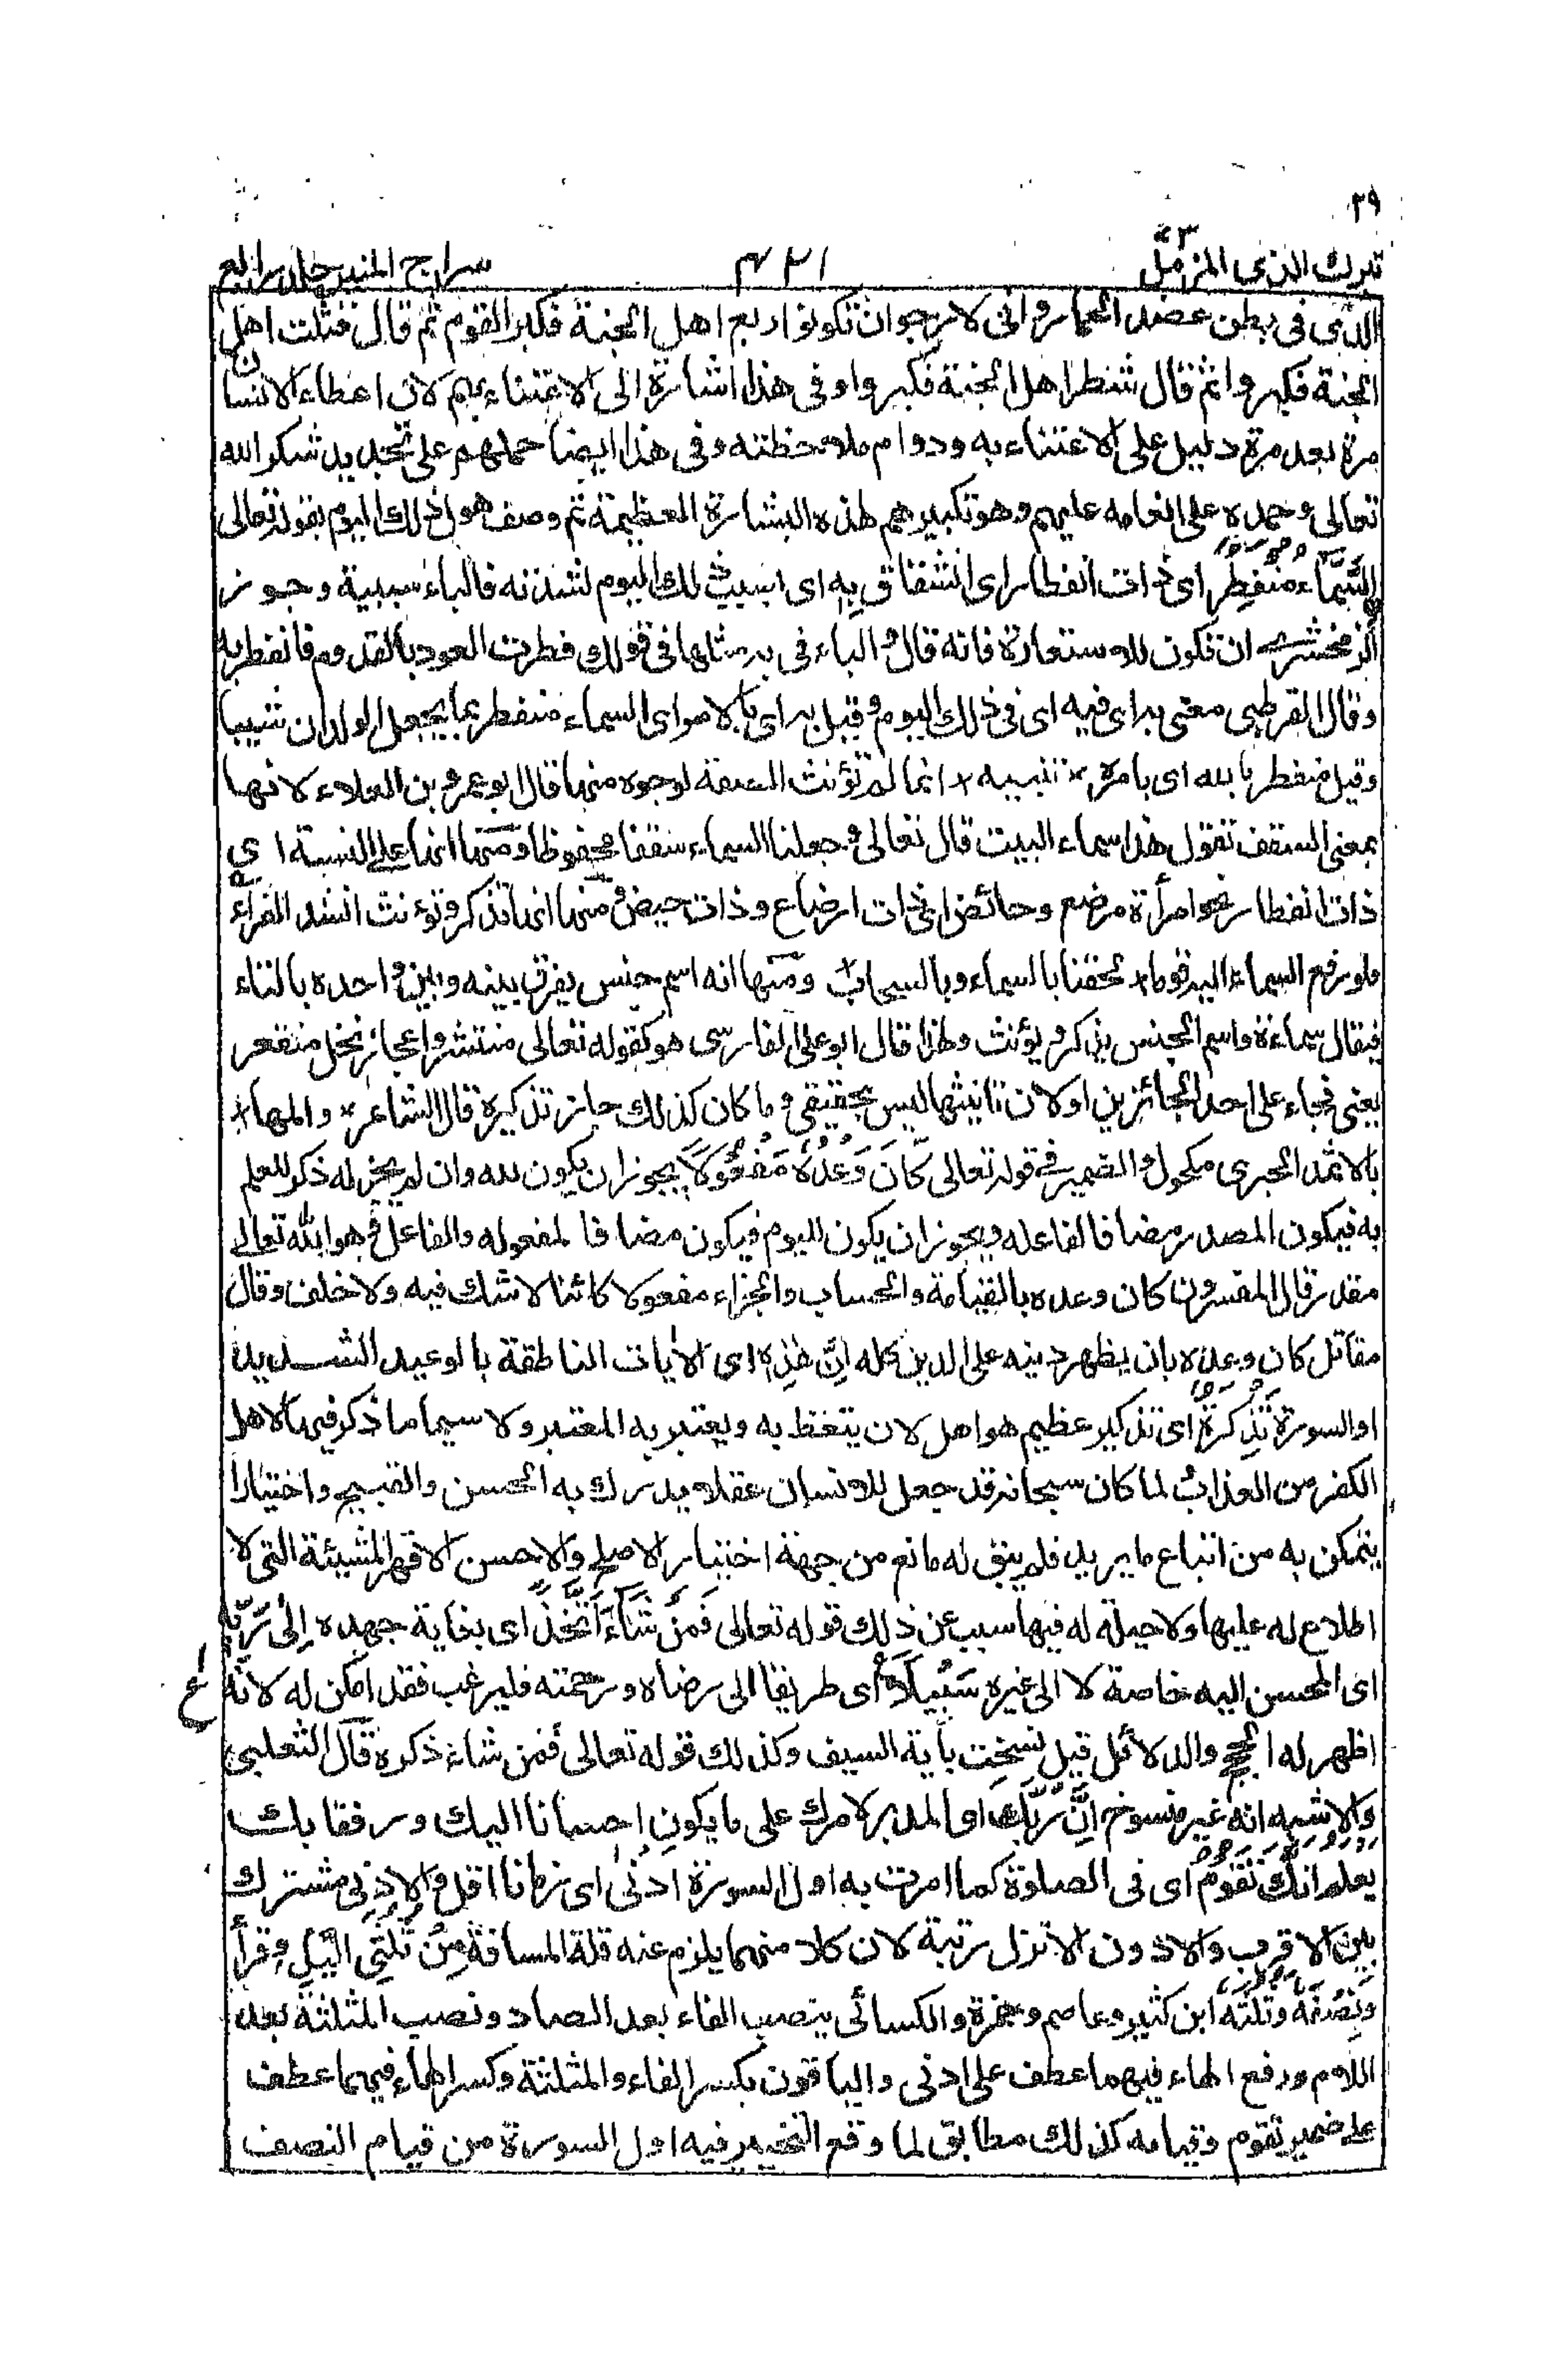 ٢٩
تبرك الذى المزمل ٧٣
٤٢١
سراج المنير جلد رابع
الذى فى بطن عضد الحمار وانى لارجو ان تكونوا ربع اهل الجنة فكبر القوم ثم قال فثلث اهل
الجنة فكبروا ثم قال شطر اهل الجنة فكبروا وفى هذا اشارة الى الاعتناء بهم لان اعطاء الانسان
مرة بعد مرة دليل على الاعتناء به ودوام ملاحظته وفى هذا ايضا حملهم على تجديد شكر الله
تعالى وحمده على انعامه عليهم وهو تكبيرهم لهذه البشارة العظيمة ثم وصف هول ذلك اليوم بقوله تعالى
السَّمَاءُ مُنْفَطِرٌ اى ذات انفطار اى انشقاق بِهِ اى بسبب ذلك اليوم لشدته فالباء سببية وجوز
الزمخشرى ان تكون للاستعانة فانه قال والباء فى به مثلها فى قولك فطرت العود بالقدوم فانفطر به
وقال القرطبى معنى به اى فيه اى فى ذلك اليوم وقيل به اى بالامر اى السماء منفطر بما يجعل الولدان شيبا
وقيل منفطر بالله اى بامره * تنبيه * انما لم تؤنث الصفة لوجوه منها قال ابو عمرو بن العلاء لانها
بمعنى السقف تقول هذا سماء البيت قال تعالى وجعلنا السماء سقفا محفوظا ومنها انها على النسبة اى
ذات انفطار نحو امرأة مرضع وحائض اى ذات ارضاع وذات حيض ومنها انها تذكر وتؤنث انشد الفراء
فلو رفع السماء اليه قوما * لحقنا بالسماء وبالسحاب * ومنها انه اسم جنس يفرق بينه وبين واحده بالتاء
فيقال سماءة واسم الجنس يذكر ويؤنث ولهذا قال ابو على الفارسى هو كقوله تعالى منتشر واعجاز نخل منقعر
يعنى فجاء على احد الجائزين او لان تانيثها ليس بحقيقى وما كان كذلك جاز تذكيره قال الشاعر * والعها *
بالاثمد الحبرى مكحول والضمير فى قوله تعالى كَانَ وَعْدُهُ مَفْعُولًا يجوز ان يكون لله وان لم يجر له ذكر للعلم
به فيكون المصدر مضافا لفاعله ويجوز ان يكون لليوم فيكون مضافا لمفعوله والفاعل وهو الله تعالى
مقدر قال المفسرون كان وعده بالقيامة والحساب والجزاء مفعولا كائنا لا شك فيه ولا خلف وقال
مقاتل كان وعده بان يظهر دينه على الدين كله اِنَّ هٰذِهِ اى الايات الناطقة بالوعيد الشديد
او السورة تَذْكِرَةٌ اى تذكير عظيم هو اهل لان يتعظ به ويعتبر به المعتبر ولا سيما ما ذكر فيها لاهل
الكفر من العذاب لما كان سبحانه قد جعل للانسان عقلا يدرك به الحسن والقبيح واختيارا
يتمكن به من اتباع ما يريد فلم يبق له مانع من جهة اختيار الاصلح والاحسن الا قهر المشيئة التى لا
اطلاع له عليها ولا حيلة له فيها سبب عن ذلك قوله تعالى فَمَنْ شَاءَ اتَّخَذَ اى بغاية جهده اِلٰى رَبِّهِ
اى المحسن اليه خاصة لا الى غيره سَبِيْلًا اى طريقا الى رضاه ورحمته فليرغب فقد امكن له لانه
ع
اظهر له الحجج والدلائل قيل نسخت بأية السيف وكذلك قوله تعالى فمن شاء ذكره قال الثعلبى
والاشبه انه غير منسوخ اِنَّ رَبَّكَ اى المدبر لامرك على ما يكون احسانا اليك ورفقا بك
يَعْلَمُ اَنَّكَ تَقُوْمُ اى فى الصلوة كما امرت به اول السورة اَدْنٰى اى زمانا اقل والادنى مشترك
بين الاقرب والادون الانزل رتبة لان كلا منهما يلزم عنه قلة المسافة مِنْ ثُلُثَىِ الَّيْلِ وقرأ
وَنِصْفَهُ وَثُلُثَهُ ابن كثير وعاصم وحمزة والكسائى بنصب الفاء بعد الصاد ونصب المثلثة بعد
اللام ورفع الهاء فيهما عطف على ادنى والباقون بكسر الفاء والمثلثة وكسر الهاء فيهما عطف
على ضمير تقوم وقيامه كذلك مطابق لما وقع التخيير فيه اول السورة من قيام النصف